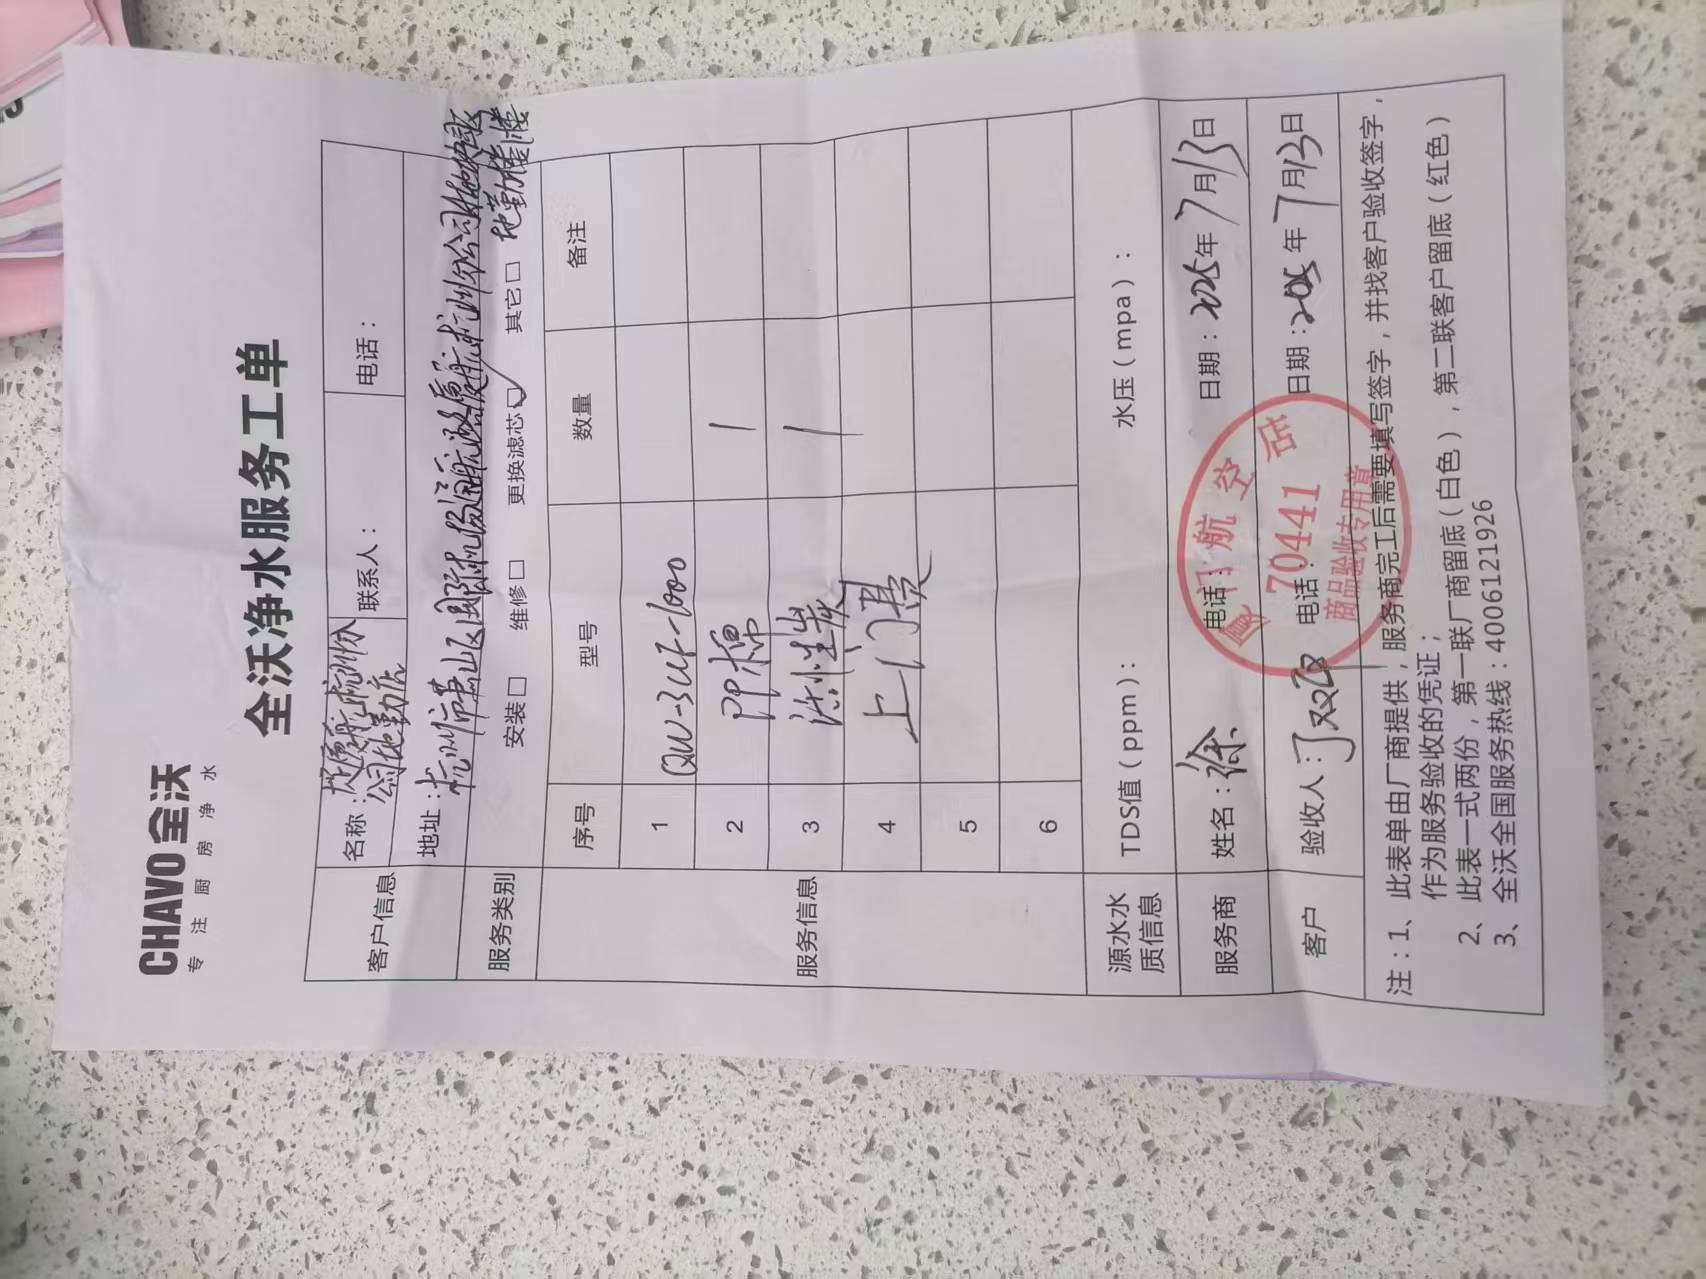 CHAVO 全沃
专注厨房净水
全沃净水服务工单
客户信息
名称：厦航杭州分公司地勤店
联系人：
电话：
地址：杭州市萧山区国际机场通航路厦航杭州分公司基地园区地勤楼1楼
服务类别
安装□ 维修□ 更换滤芯☑ 其它□
服务信息
序号 型号 数量 备注
1 QW-3UF-1000
2 PP棉 1
3 活性炭 1
4 上门费
5
6
源水水质信息
TDS值（ppm）： 水压（mpa）：
服务商 姓名：徐 电话： 日期：2025年7月13日
客户 验收人：丁 电话： 日期：2025年7月13日
厦门航空店
70441
商品验收专用章
注：1、此表单由厂商提供，服务商完工后需要填写签字，并找客户验收签字，
作为服务验收的凭证；
2、此表一式两份，第一联厂商留底（白色），第二联客户留底（红色）
3、全沃全国服务热线：4006121926